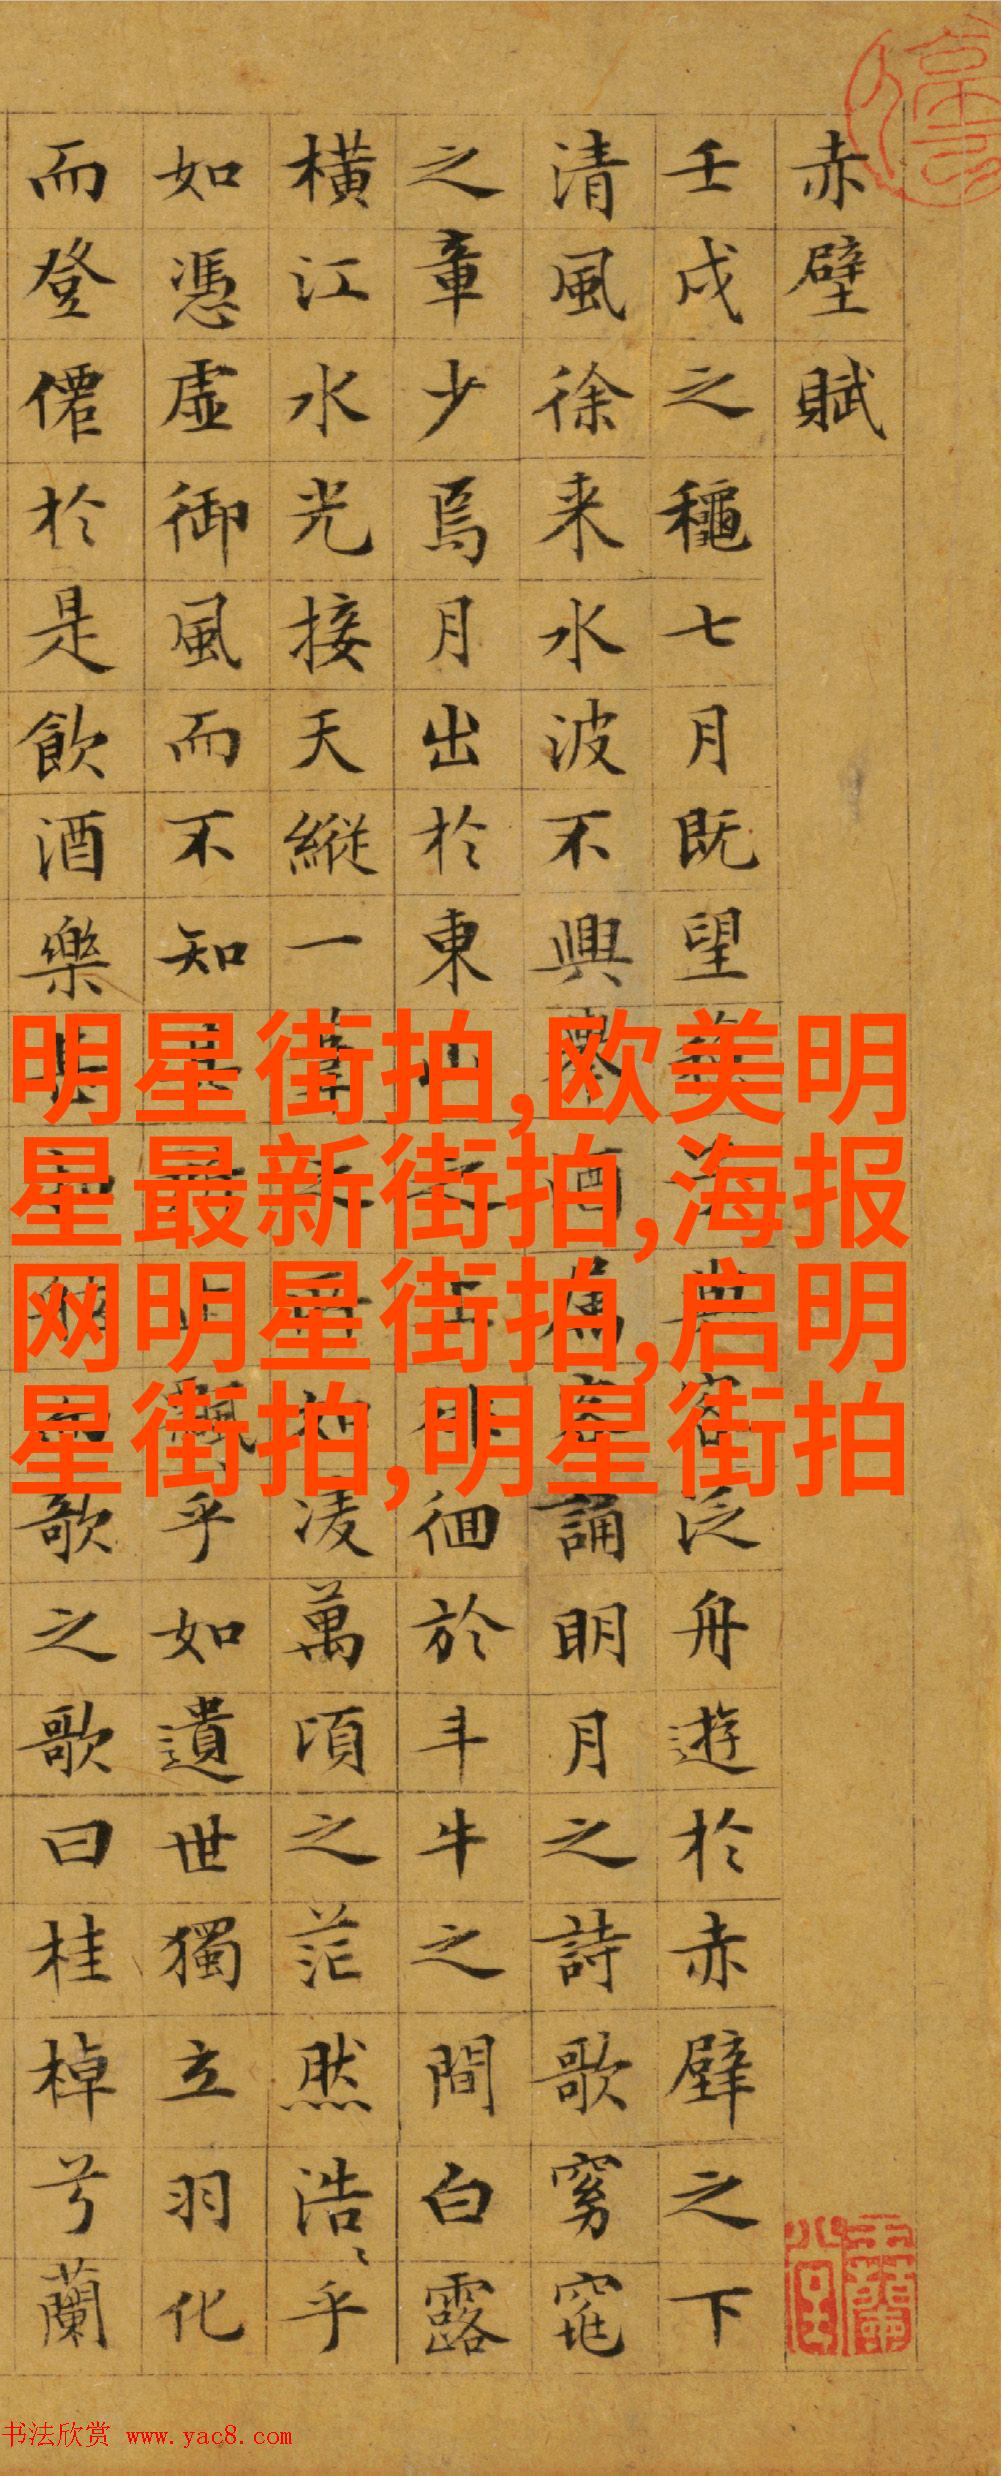 赤壁賦
壬戌之龝七月既望泛舟遊於赤壁之下
清風徐来水波不興誦明月之詩歌窈窕
之章少焉月出於東徊於斗牛之間白露
橫江水光接天縱一凌萬頃之茫然浩〻乎
如憑虛御風而不知飄乎如遺世獨立羽化
而登僊於是飲酒樂歌之歌曰桂棹兮蘭
明星街拍,欧美明
星最新街拍,海报
网明星街拍,启明
星街拍,明星街拍
书法欣赏 www.yac8.com